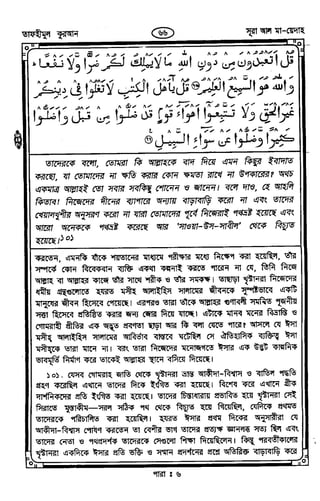 তাফহীমুল কুরআন
৬৬
সূরা আল মা-য়েদাহ
قُلْ اَتَعْبُدُوْنَ مِنْ دُوْنِ اللّٰهِ مَا لَا يَمْلِكُ لَكُمْ ضَرًّا وَّلَا نَفْعًا ؕ
وَاللّٰهُ هُوَ السَّمِيْعُ الْعَلِيْمُ ﴿٧٦﴾ قُلْ يٰٓاَهْلَ الْكِتٰبِ لَا تَغْلُوْا فِيْ دِيْنِكُمْ
غَيْرَ الْحَقِّ وَلَا تَتَّبِعُوْٓا اَهْوَآءَ قَوْمٍ قَدْ ضَلُّوْا مِنْ قَبْلُ وَاَضَلُّوْا
كَثِيْرًا وَّضَلُّوْا عَنْ سَوَآءِ السَّبِيْلِ ﴿٧٧﴾
তাদেরকে বলো, তোমরা কি আল্লাহকে বাদ দিয়ে এমন কিছুর ইবাদাত
করছো, যা তোমাদের না ক্ষতি করার কোন ক্ষমতা রাখে না উপকারের? অথচ
একমাত্র আল্লাহই তো সবার সবকিছু শোনেন ও জানেন। বলে দাও, হে আহলি
কিতাব! নিজেদের দীনের ব্যাপারে অন্যায় বাড়াবাড়ি করো না এবং তাদের
খেয়ালখুশীর অনুসরণ করো না যারা তোমাদের পূর্বে নিজেরাই পথভ্রষ্ট হয়েছে এবং
আরো অনেককে পথভ্রষ্ট করেছে আর 'সাওয়া-উস-সাবীল' থেকে বিচ্যুত
হয়েছে।১০১
করতেন, এমনকি যাঁকে শয়তানের মাধ্যমে পরীক্ষার মধ্যে নিক্ষেপ করা হয়েছিল, তাঁর
সম্পর্কে কোন বিবেকবান ব্যক্তি একথা কল্পনাই করতে পারেন না যে, তিনি নিজে
আল্লাহ বা আল্লাহর কাজে তাঁর সাথে শরীক ও তাঁর সমকক্ষ। তাছাড়া খৃস্টানরা নিজেদের
ধর্মীয় গ্রন্থগুলোতে হযরত মসীহ আলাইহিস সালামের জীবনকে সুস্পষ্টভাবে একটি
মানুষের জীবন হিসেবে পেয়েছে। এরপরও তারা তাঁকে আল্লাহর গুণাবলী সমন্বিত পূজনীয়
সত্তা হিসেবে প্রতিষ্ঠিত করার জন্য জোর দিয়ে যাচ্ছে। এটাকে মানব মনের বিভ্রান্তি ও
গোমরাহী প্রীতির এক অদ্ভুত প্রবণতা ছাড়া আর কি বলা যেতে পারে? আসলে যে ঈসা
মসীহ্ আলাইহিস সালামের আবির্ভাব বাস্তবে ঘটেছিল সে ঐতিহাসিক ব্যক্তিত্ব ঈসা
মসীহ্‌কে তারা মানে না। বরং তারা নিজেদের মনোজগতে ঈসার এক উদ্ভট কাল্পনিক
ভাবমূর্তি নির্মাণ করে তাকেই আল্লাহর স্থানে বসিয়ে দিয়েছে।
১০১. যেসব গোমরাহ জাতি থেকে খৃস্টানরা ভ্রান্ত আকীদা-বিশ্বাস ও বাতিল পদ্ধতি
গ্রহণ করেছিল এখানে তাদের দিকে ইংগিত করা হয়েছে। বিশেষ করে এখানে গ্রীক
দার্শনিকদের প্রতি ইংগিত করা হয়েছে। তাদের চিন্তাধারায় প্রভাবিত হয়ে খৃস্টানরা সেই
সিরাতে মুস্তাকীম—সরল সঠিক পথ থেকে বিচ্যুত হয়ে গিয়েছিল, যেদিকে প্রথমত
তাদেরকে পরিচালিত করা হয়েছিল। হযরত ঈসার প্রথম দিকের অনুসারীরা যে
আকীদা-বিশ্বাস পোষণ করতেন তা বেশীর ভাগ তাদের প্রত্যক্ষ জ্ঞানলব্ধ সত্য ছিল এবং
তাদের নেতা ও পথপ্রদর্শক তাদেরকে সেগুলো শিক্ষা দিয়েছিলেন। কিন্তু পরবর্তীকালের
খৃস্টানরা একদিকে ঈসার প্রতি ভক্তি ও সম্মান প্রদর্শনের প্রশ্নে অতিরিক্ত বাড়াবাড়ি করে
পারা : ৬